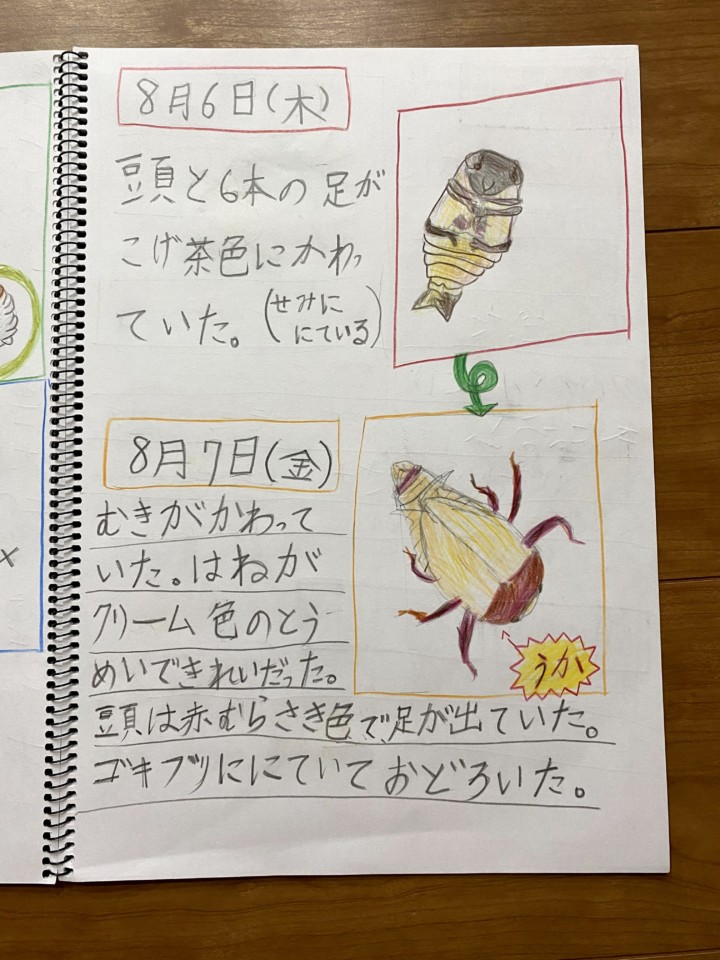 8月6日(木)
頭と6本の足が
こげ茶色にかわっ
ていた。(せみに
にている)
8月7日(金)
むきがかわって
いた。はねが
クリーム色のとう
めいできれいだった。
頭は赤むらさき色で、足が出ていた。
ゴキブリににていておどろいた。
うか